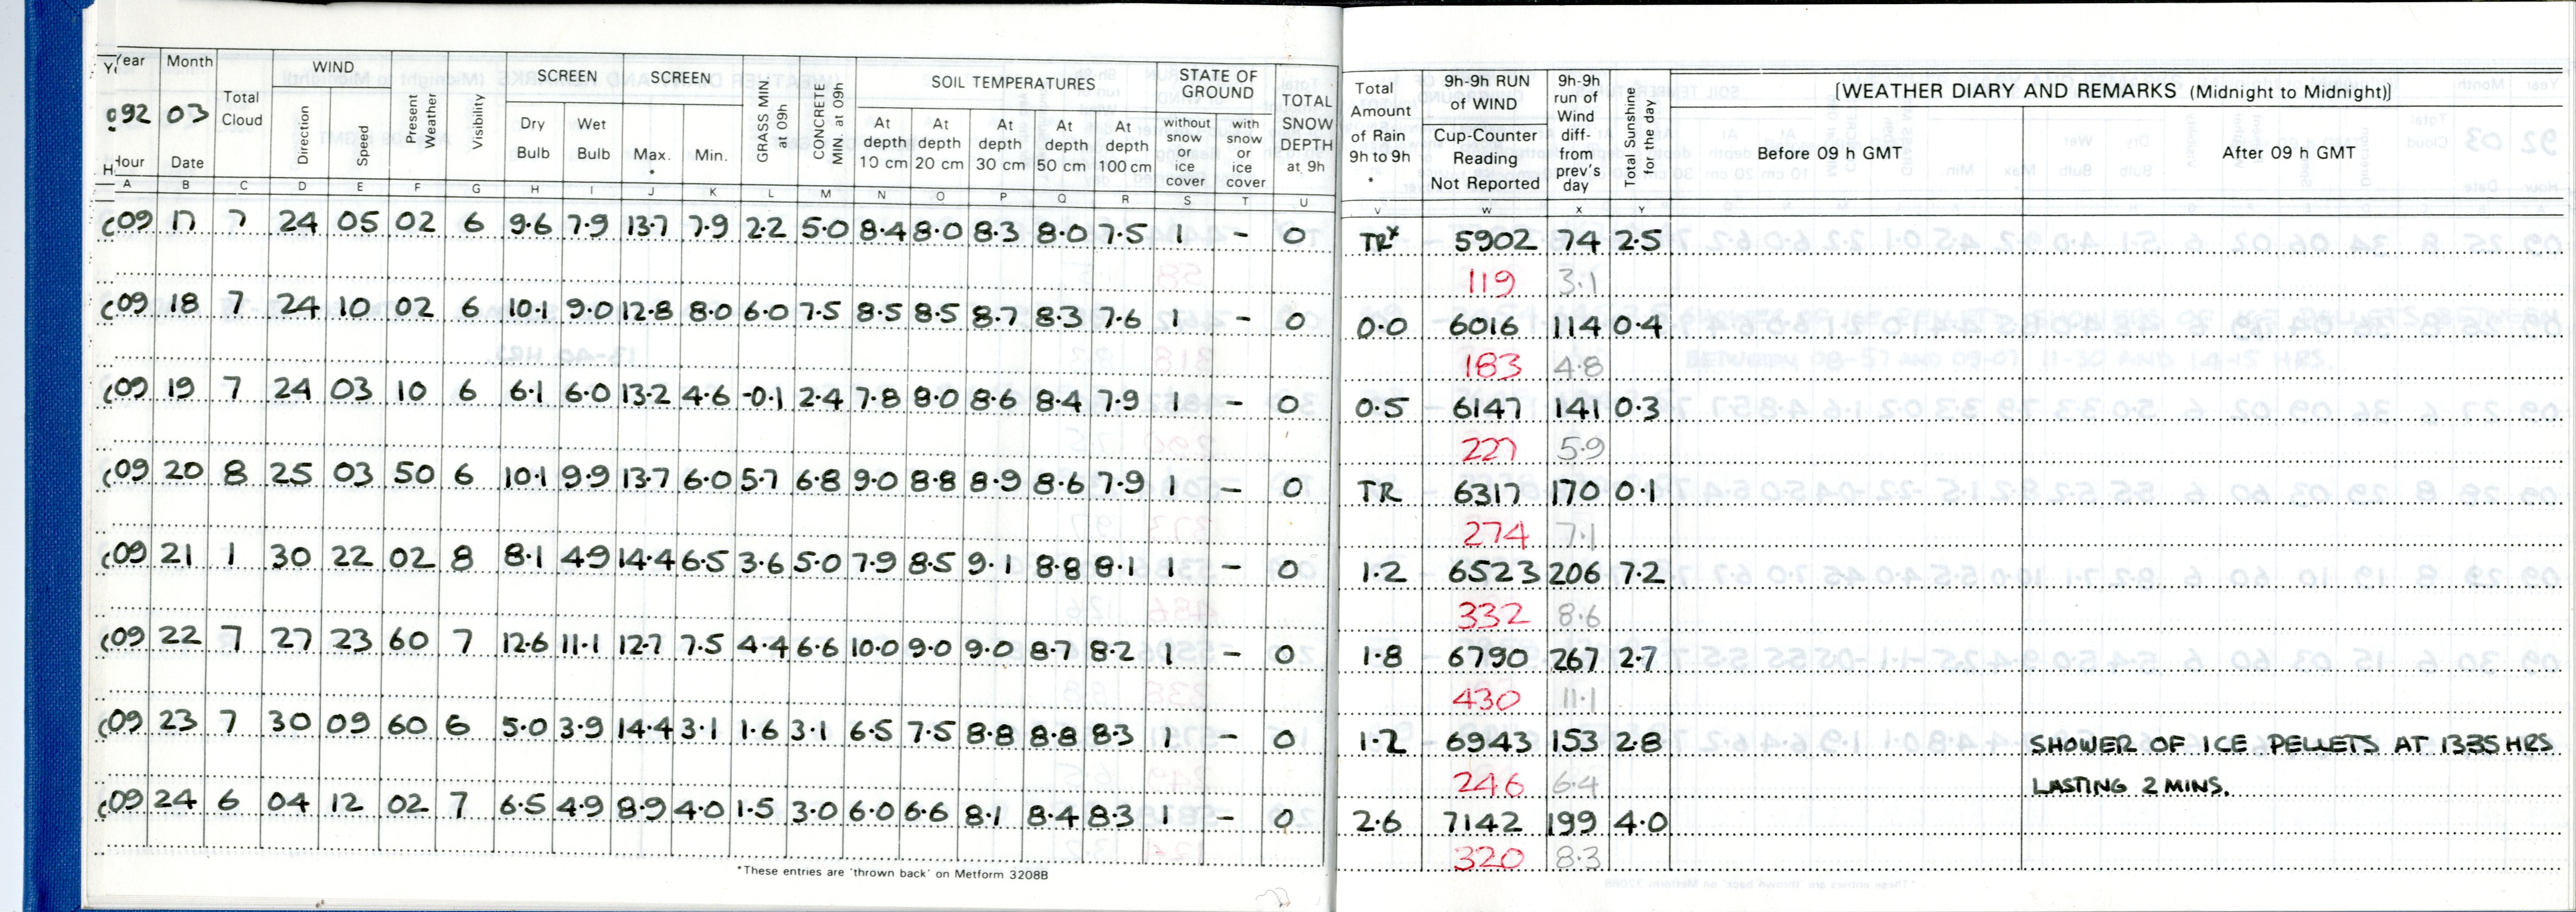 Year Month WIND SCREEN SCREEN SOIL TEMPERATURES STATE OF GROUND
992 03 Total Cloud Direction Speed Present Weather Visibility Dry Bulb Wet Bulb Max. * Min. GRASS MIN. at 09h CONCRETE MIN. at 09h At depth 10 cm At depth 20 cm At depth 30 cm At depth 50 cm At depth 100 cm without snow or ice cover with snow or ice cover TOTAL SNOW DEPTH at 9h
Hour Date
Total Amount of Rain 9h to 9h * 9h-9h RUN of WIND Cup-Counter Reading Not Reported 9h-9h run of Wind diff- from prev's day Total Sunshine for the day [WEATHER DIARY AND REMARKS (Midnight to Midnight)]
Before 09 h GMT After 09 h GMT
A B C D E F G H I J K L M N O P Q R S T U V W X Y
09 17 7 24 05 02 6 9.6 7.9 13.7 7.9 2.2 5.0 8.4 8.0 8.3 8.0 7.5 1 - 0 TR* 5902 74 2.5
119 3.1
09 18 7 24 10 02 6 10.1 9.0 12.8 8.0 6.0 7.5 8.5 8.5 8.7 8.3 7.6 1 - 0 0.0 6016 114 0.4
183 4.8
09 19 7 24 03 10 6 6.1 6.0 13.2 4.6 -0.1 2.4 7.8 8.0 8.6 8.4 7.9 1 - 0 0.5 6147 141 0.3
227 5.9
09 20 8 25 03 50 6 10.1 9.9 13.7 6.0 5.7 6.8 9.0 8.8 8.9 8.6 7.9 1 - 0 TR 6317 170 0.1
274 7.1
09 21 1 30 22 02 8 8.1 4.9 14.4 6.5 3.6 5.0 7.9 8.5 9.1 8.8 8.1 1 - 0 1.2 6523 206 7.2
332 8.6
09 22 7 27 23 60 7 12.6 11.1 12.7 7.5 4.4 6.6 10.0 9.0 9.0 8.7 8.2 1 - 0 1.8 6790 267 2.7
430 11.1
09 23 7 30 09 60 6 5.0 3.9 14.4 3.1 1.6 3.1 6.5 7.5 8.8 8.8 8.3 1 - 0 1.2 6943 153 2.8 SHOWER OF ICE PELLETS AT 1335 HRS
246 6.4 LASTING 2 MINS.
09 24 6 04 12 02 7 6.5 4.9 8.9 4.0 1.5 3.0 6.0 6.6 8.1 8.4 8.3 1 - 0 2.6 7142 199 4.0
320 8.3
*These entries are 'thrown back' on Metform 3208B